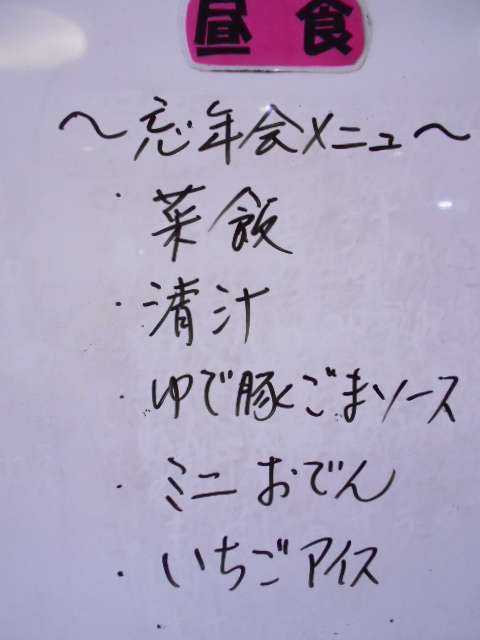 昼食
～忘年会メニュー～
・菜飯
・清汁
・ゆで豚ごまソース
・ミニおでん
・いちごアイス